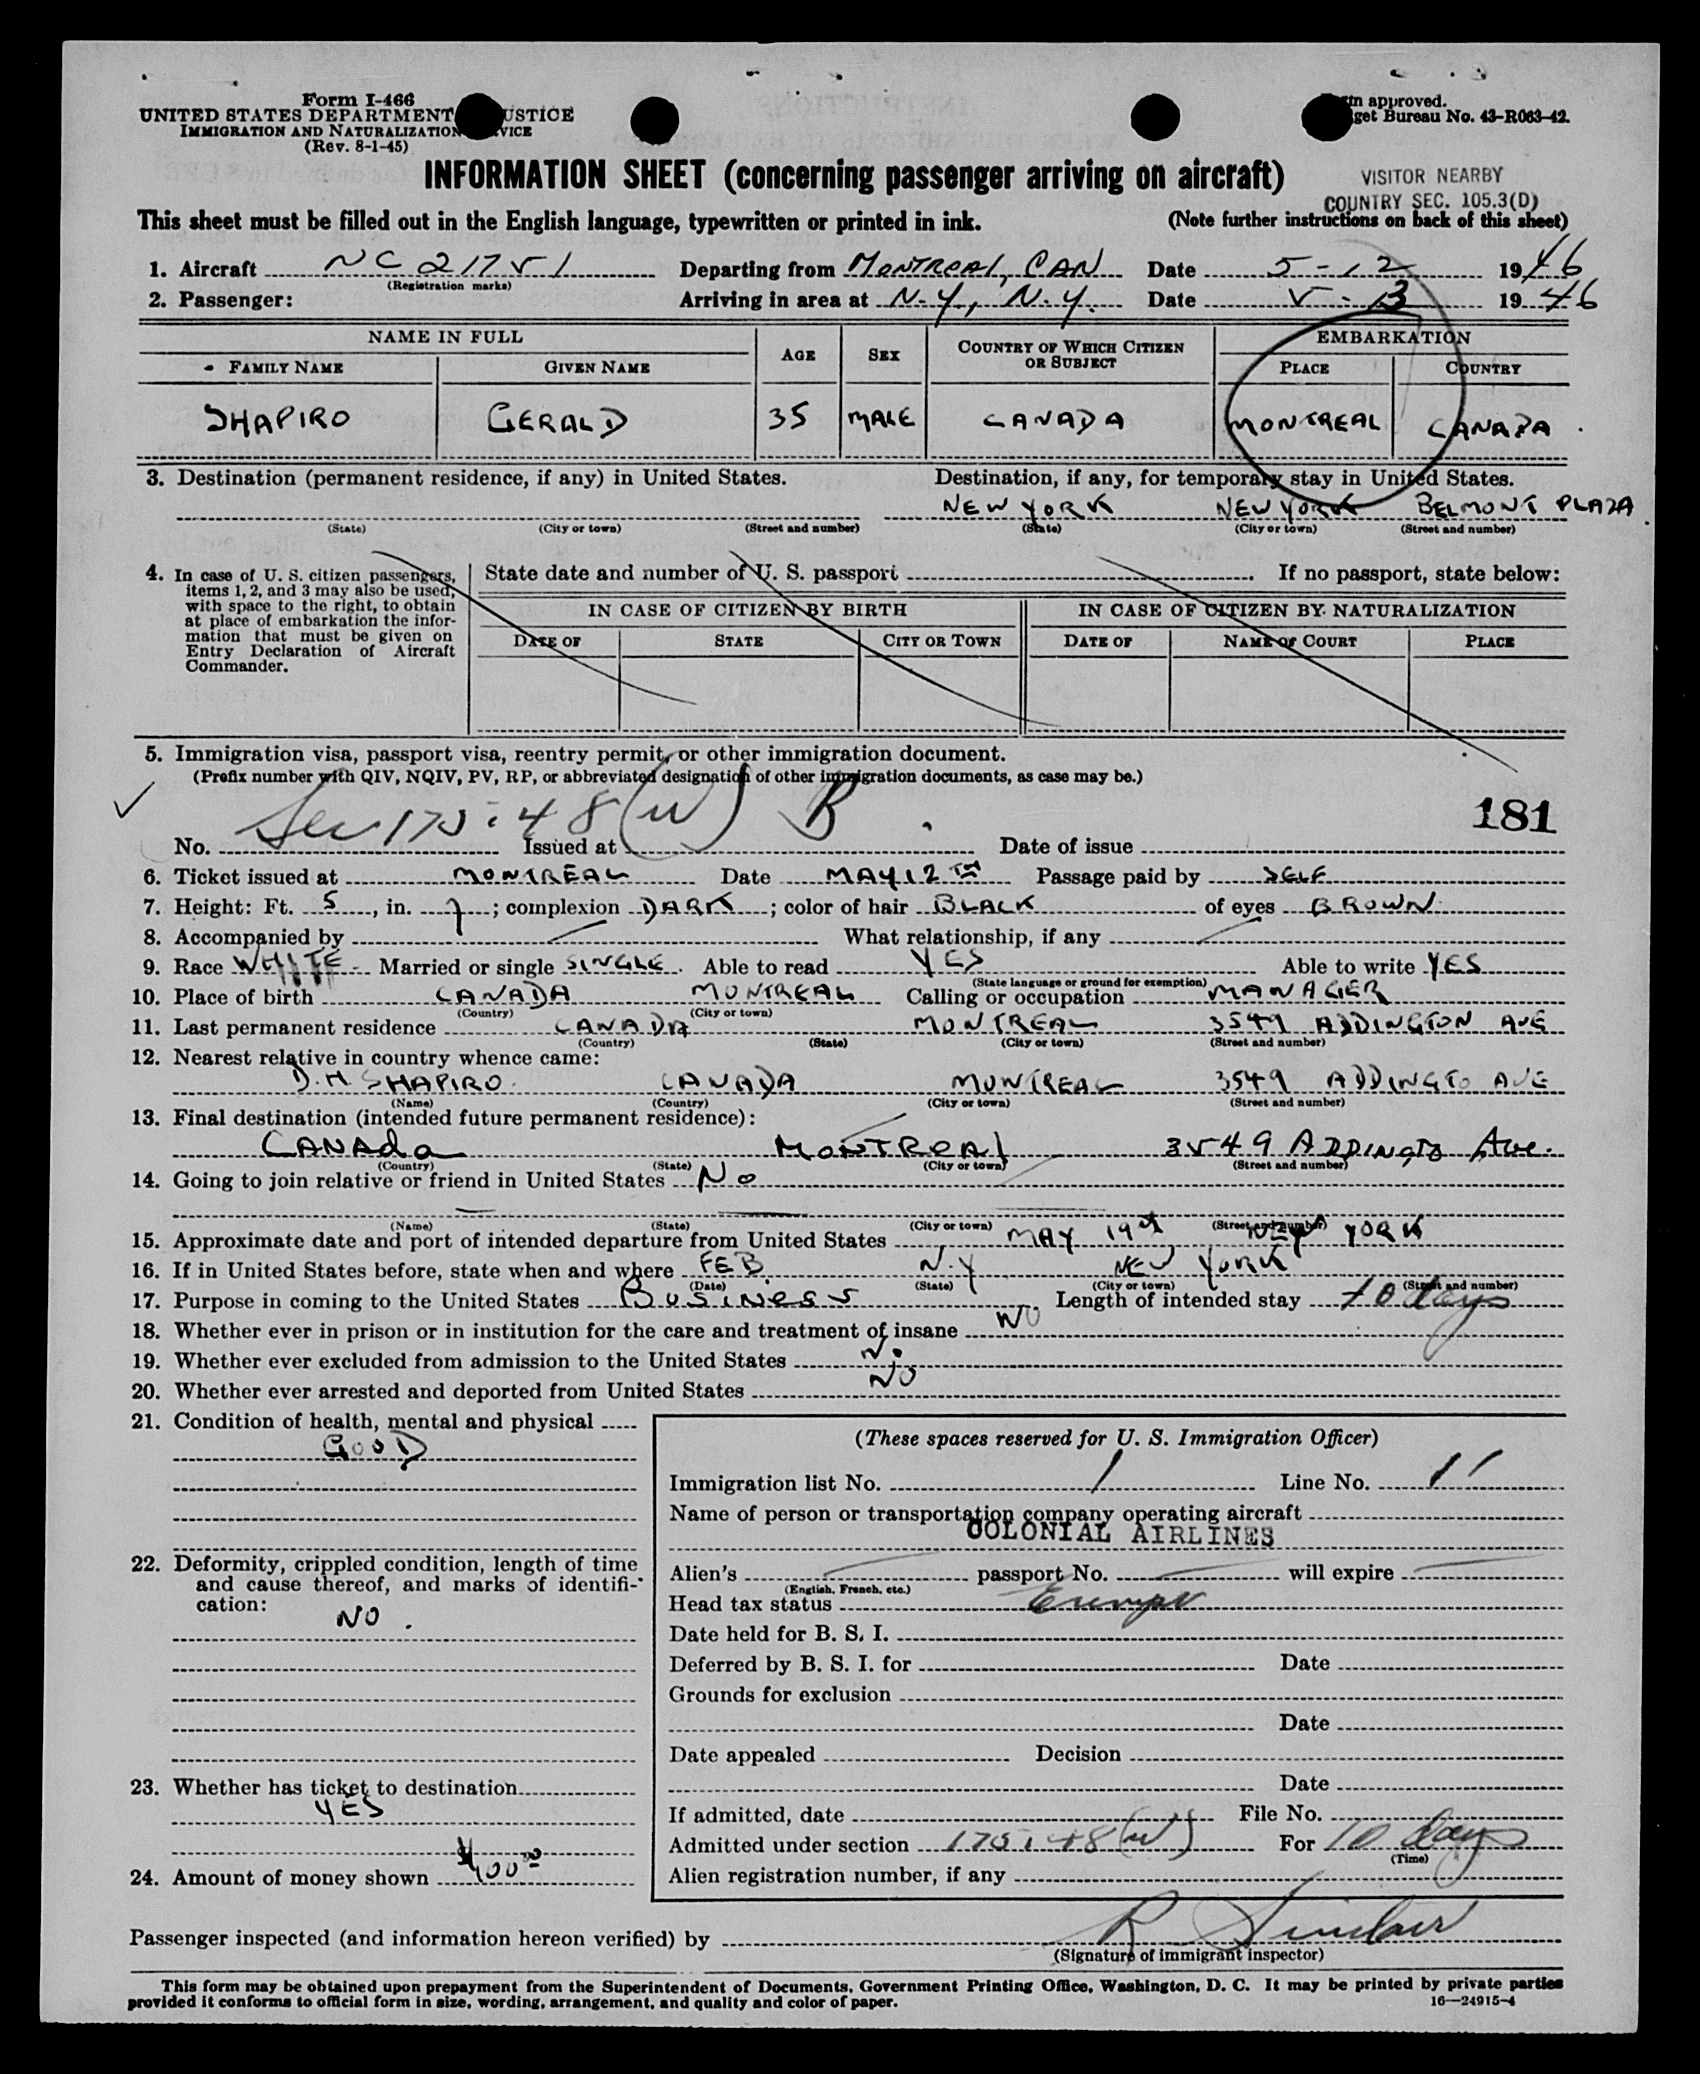 Form I-466
UNITED STATES DEPARTMENT USTICE
IMMIGRATION AND NATURALIZATION VICE
(Rev. 8-1-45)
approved.
get Bureau No. 43-R063-42.
INFORMATION SHEET (concerning passenger arriving on aircraft)
VISITOR NEARBY
COUNTRY SEC. 105.3(D)
This sheet must be filled out in the English language, typewritten or printed in ink. (Note further instructions on back of this sheet)
1. Aircraft NC 21751 Departing from MONTREAL, CAN Date 5-12 1946
(Registration marks)
2. Passenger: Arriving in area at N.Y., N.Y. Date 5-13 1946
NAME IN FULL AGE SEX COUNTRY OF WHICH CITIZEN OR SUBJECT EMBARKATION
FAMILY NAME GIVEN NAME PLACE COUNTRY
SHAPIRO GERALD 35 MALE CANADA MONTREAL CANADA
3. Destination (permanent residence, if any) in United States. Destination, if any, for temporary stay in United States.
NEW YORK NEW YORK BELMONT PLAZA
(State) (City or town) (Street and number) (State) (City or town) (Street and number)
4. In case of U. S. citizen passengers, items 1, 2, and 3 may also be used, with space to the right, to obtain at place of embarkation the information that must be given on Entry Declaration of Aircraft Commander.
State date and number of U. S. passport If no passport, state below:
IN CASE OF CITIZEN BY BIRTH IN CASE OF CITIZEN BY NATURALIZATION
DATE OF STATE CITY OR TOWN DATE OF NAME OF COURT PLACE
5. Immigration visa, passport visa, reentry permit, or other immigration document.
(Prefix number with QIV, NQIV, PV, RP, or abbreviated designation of other immigration documents, as case may be.)
181
No. Sec 175.48(w) B Issued at Date of issue
6. Ticket issued at MONTREAL Date MAY 12TH Passage paid by SELF
7. Height: Ft. 5, in. 7; complexion DARK; color of hair BLACK of eyes BROWN
8. Accompanied by What relationship, if any
9. Race WHITE Married or single SINGLE. Able to read YES Able to write YES
(State language or ground for exemption)
10. Place of birth CANADA MONTREAL Calling or occupation MANAGER
(Country) (City or town)
11. Last permanent residence CANADA MONTREAL 3549 ADDINGTON AVE
(Country) (State) (City or town) (Street and number)
12. Nearest relative in country whence came:
D.H. SHAPIRO CANADA MONTREAL 3549 ADDINGTO AVE
(Name) (Country) (City or town) (Street and number)
13. Final destination (intended future permanent residence):
CANAda MONTREAl 3549 ADDINGTO Ave.
(Country) (State) (City or town) (Street and number)
14. Going to join relative or friend in United States No
(Name) (State) (City or town) (Street and number)
15. Approximate date and port of intended departure from United States MAY 19th NEW YORK
16. If in United States before, state when and where FEB. N.Y NEW YORK
(Date) (State) (City or town) (Street and number)
17. Purpose in coming to the United States Business. Length of intended stay 10 days
18. Whether ever in prison or in institution for the care and treatment of insane NO
19. Whether ever excluded from admission to the United States No
20. Whether ever arrested and deported from United States NO
21. Condition of health, mental and physical
GOOD
22. Deformity, crippled condition, length of time and cause thereof, and marks of identification:
NO.
23. Whether has ticket to destination
YES
24. Amount of money shown $100.00
(These spaces reserved for U. S. Immigration Officer)
Immigration list No. 1 Line No. 11
Name of person or transportation company operating aircraft
COLONIAL AIRLINES
Alien's passport No. will expire
(English, French, etc.)
Head tax status Exempt
Date held for B. S. I.
Deferred by B. S. I. for Date
Grounds for exclusion
Date
Date appealed Decision
Date
If admitted, date File No.
Admitted under section 175.48(w) For 10 days
(Time)
Alien registration number, if any
Passenger inspected (and information hereon verified) by R Sinclair
(Signature of immigrant inspector)
This form may be obtained upon prepayment from the Superintendent of Documents, Government Printing Office, Washington, D. C. It may be printed by private parties
provided it conforms to official form in size, wording, arrangement, and quality and color of paper. 16—24915-4